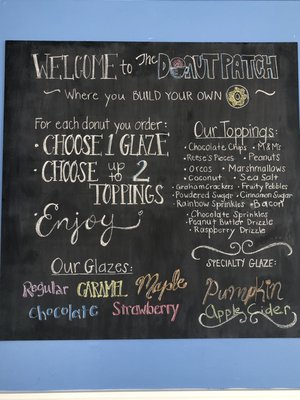 WELCOME to The DONUT PATCH
~ Where you BUILD YOUR OWN ~
For each donut you order:
• CHOOSE 1 GLAZE
• CHOOSE up to 2
TOPPINGS
• Enjoy
Our Glazes:
Regular CARAMEL Maple
Chocolate Strawberry
Our Toppings:
• Chocolate Chips • M&Ms
• Reese's Pieces • Peanuts
• Oreos • Marshmallows
• Coconut • Sea Salt
• Graham Crackers • Fruity Pebbles
• Powdered Sugar • Cinnamon Sugar
• Rainbow Sprinkles • Bacon
• Chocolate Sprinkles
• Peanut Butter Drizzle
• Raspberry Drizzle
SPECIALTY GLAZE:
Pumpkin
Apple Cider